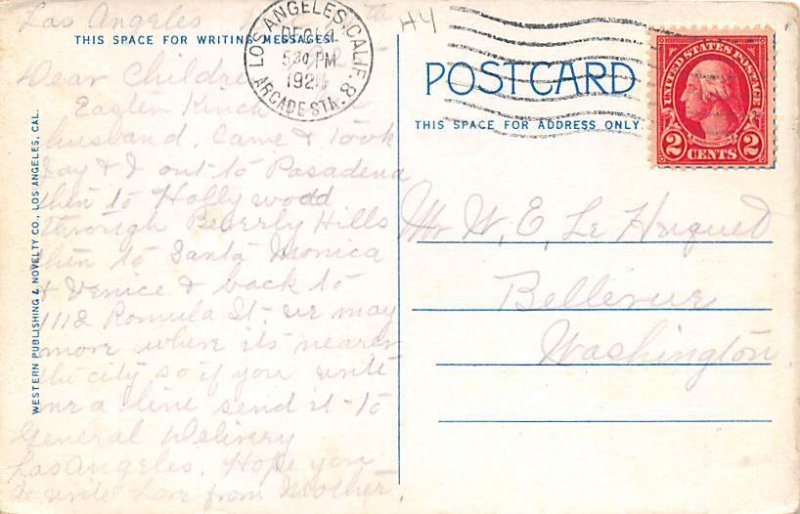 Los Angeles
THIS SPACE FOR WRITING MESSAGES
Dear Children
husband, Came & Took
Day & I out to Pasadena
then to Hollywood
through Beverly Hills
then to Santa Monica
& Venice & back to
1112 Romula St - we may
move where its nearer
the city so if you write
me a line send it - to
General Delivery
Los Angeles. Hope you
write Love from Mother
WESTERN PUBLISHING & NOVELTY CO., LOS ANGELES, CAL.
LOS ANGELES, CALIF. 8
DEC
5 30 PM
ARCADE STA.
H4
POST CARD
THIS SPACE FOR ADDRESS ONLY
UNITED STATES POSTAGE
2 CENTS 2
Mr W. E. Le Huquet
Bellevue
Washington